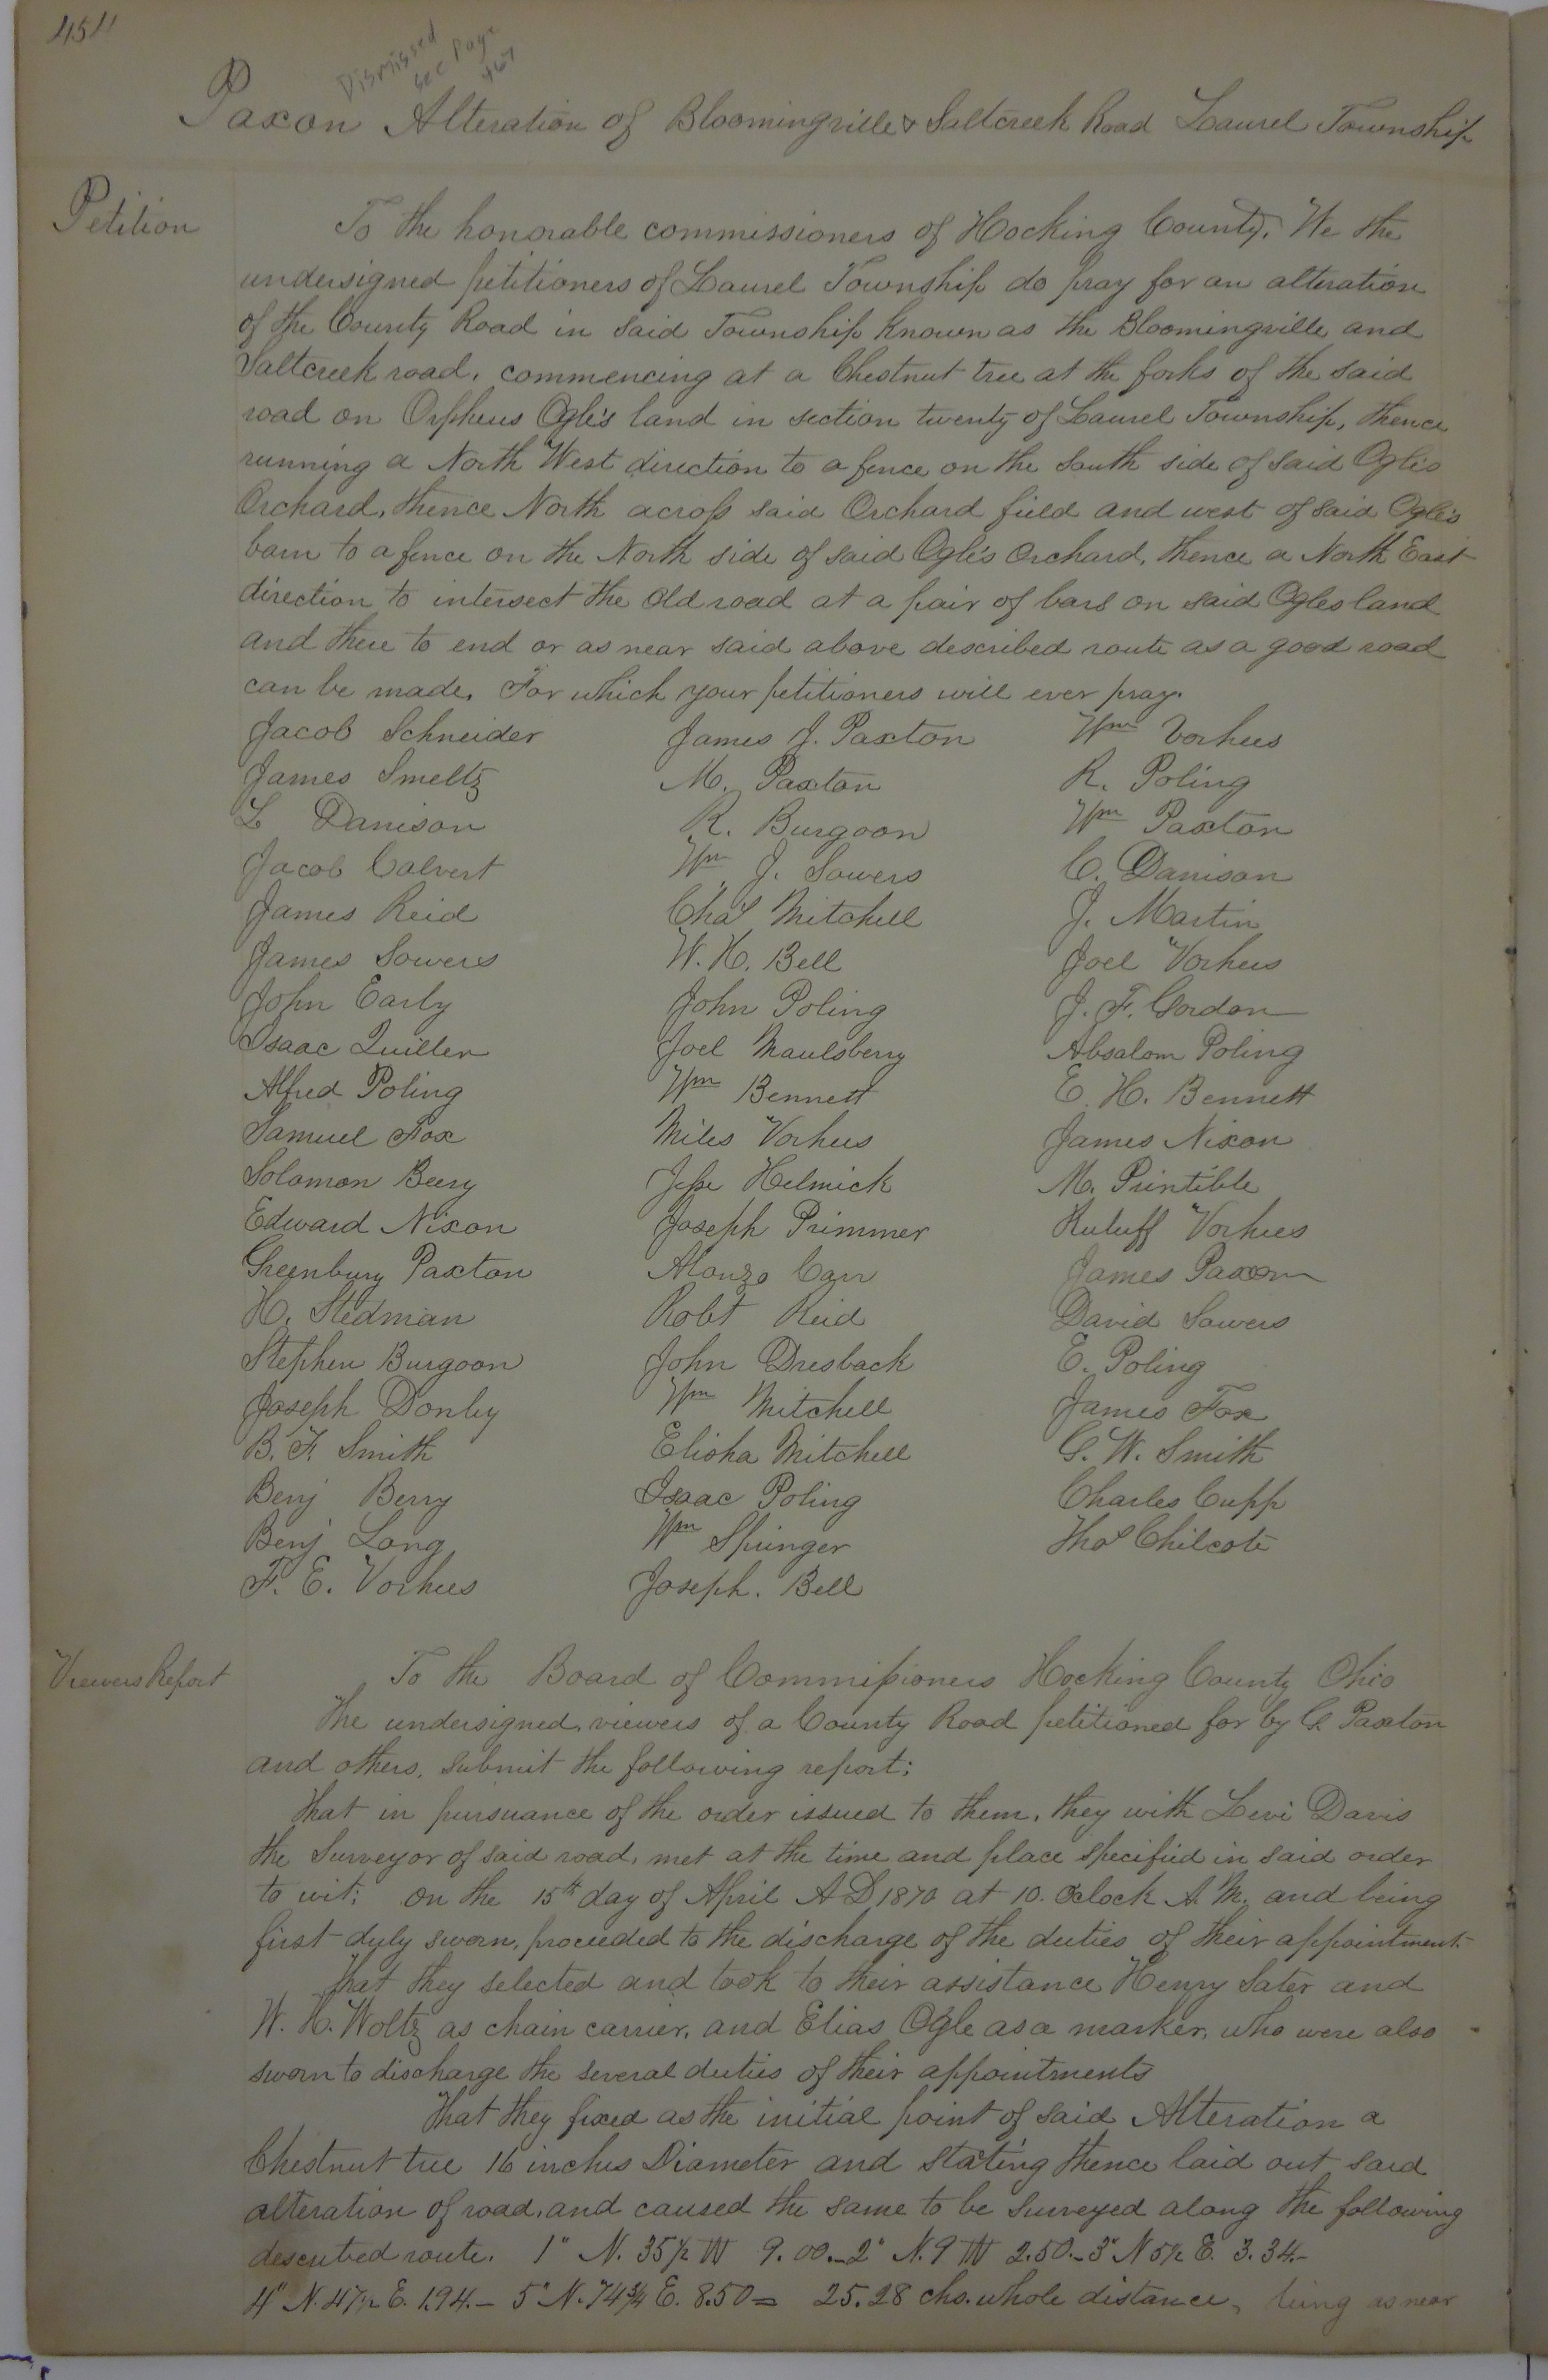 454
Dismissed
see page
467
Paxon Alteration of Bloomingville & Saltcreek Road Laurel Township
Petition
To the honorable commissioners of Hocking County. We the
undersigned petitioners of Laurel Township do pray for an alteration
of the County Road in said Township known as the Bloomingville and
Saltcreek road, commencing at a Chestnut tree at the forks of the said
road on Orpheus Ogle's land in section twenty of Laurel Township, thence
running a North West direction to a fence on the South side of said Ogle's
Orchard, thence North across said Orchard field and west of said Ogle's
barn to a fence on the North side of said Ogle's Orchard, thence a North East
direction to intersect the old road at a pair of bars on said Ogles land
and there to end or as near said above described route as a good road
can be made. For which your petitioners will ever pray.
Jacob Schneider James J. Paxton Wm Vorhees
James Smeltz M. Paxton R. Poling
L Danison R. Burgoon Wm Paxton
Jacob Calvert Wm J. Sowers C. Danison
James Reid Chas Mitchell J. Martin
James Sowers W. H. Bell Joel Vorhees
John Early John Poling J. F. Gordon
Isaac Quillen Joel Maulsberry Absalom Poling
Alfred Poling Wm Bennett E. H. Bennett
Samuel Fox Miles Vorhees James Nixon
Solomon Beery Jesse Helmick M. Printible
Edward Nixon Joseph Primmer Ruluff Vorhees
Greenbury Paxton Alonzo Carr James Paxon
H. Stedman Robt Reid David Sowers
Stephen Burgoon John Dresback E. Poling
Joseph Donley Wm Mitchell James Fox
B. F. Smith Elisha Mitchell G. W. Smith
Benj Berry Isaac Poling Charles Cupp
Benj Long Wm Springer Thos Chilcote
F. E. Vorhees Joseph. Bell
Viewers Report
To the Board of Commissioners Hocking County Ohio
The undersigned, viewers of a County Road petitioned for by G Paxton
and others, submit the following report:
That in pursuance of the order issued to them, they with Levi Davis
the Surveyor of said road, met at the time and place specified in said order
to wit: on the 15th day of April A D 1870 at 10. Oclock A. M. and being
first duly sworn, proceeded to the discharge of the duties of their appointment.
That they selected and took to their assistance Henry Sater and
W. H. Woltz as chain carrier, and Elias Ogle as a marker, who were also
sworn to discharge the several duties of their appointments
That they fixed as the initial point of said Alteration a
Chestnut tree 16 inches Diameter and stating thence laid out said
alteration of road, and caused the same to be surveyed along the following
described route. 1" N. 35 1/2 W 9.00.- 2" N. 9 W 2.50.- 3" N 5 1/2 E. 3.34.-
4" N. 47 1/2 E. 1.94.- 5" N. 74 3/4 E. 8.50 = 25.28 chs. whole distance, being as near